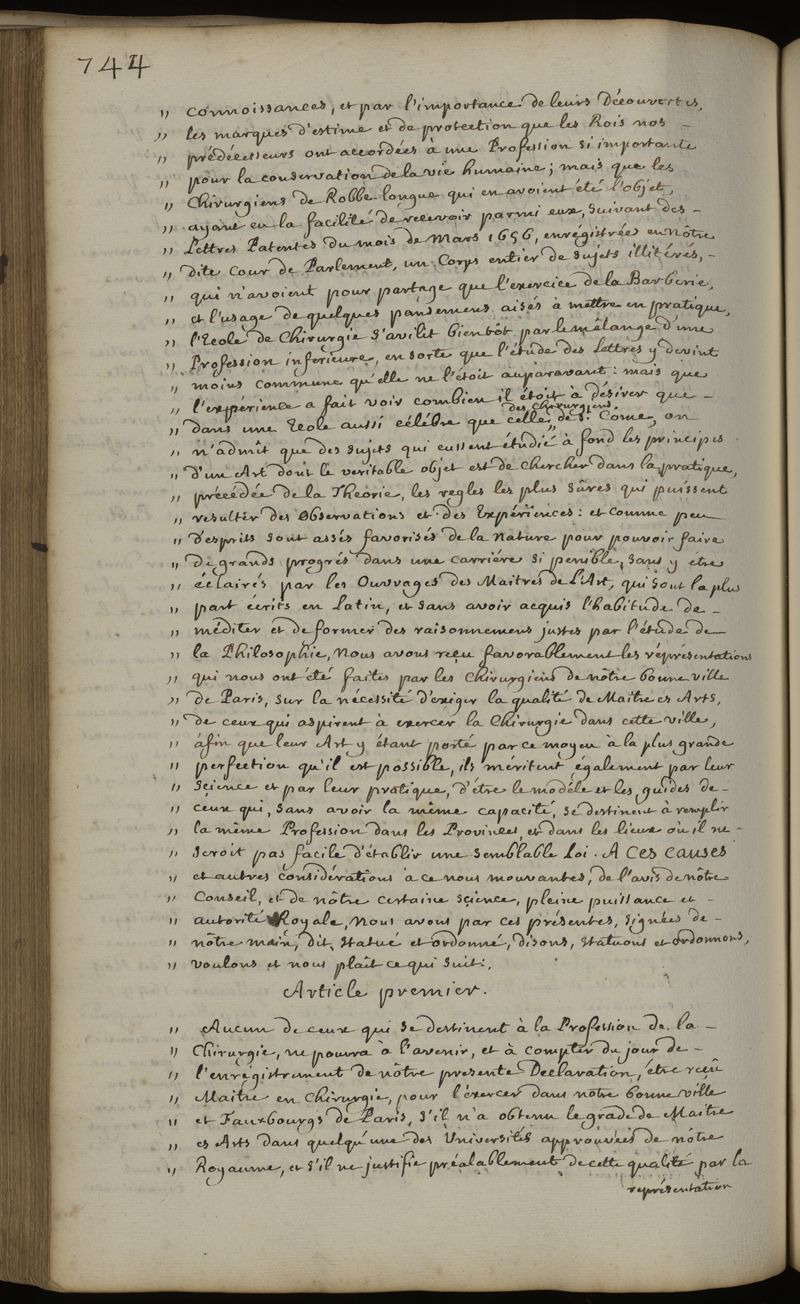 744
„ connoissances, et par l'importance de leurs Découvertes,
„ les marques d'estime et de protection que les Rois nos –
„ prédécesseurs ont accordées à une Profession si importante
„ pour la conservation de la vie humaine; mais que les
„ Chirurgiens de Robbe longue qui en avoient été l'objet,
„ ayant eu la facilité de recevoir parmi eux, suivant des –
„ Lettres Patentes du mois de Mars 1656, enrégistrées en Nôtre
„ dite Cour de Parlement, un Corps entier de sujets illitérés, –
„ qui n'avoient pour partage que l'exercice de la Barberie,
„ et l'usage de quelques pansemens aisés à mettre en pratique,
„ l'Ecole de Chirurgie s'avilit bientôt par le mêlange d'une
„ Profession inferieure, en sorte que l'étude des Lettres y devint
„ moins commune qu'elle ne l'étoit auparavant: mais que
„ l'expérience a fait voir combien il étoit à désirer que –
„ dans une Ecole aussi célébre que celle des Chirurgiens de St. Côme, on
„ n'admît que des sujets qui eussent étudié à fond les principes
„ d'un Art dont le veritable objet est de chercher dans la pratique,
„ précédée de la Theorie, les regles les plus sûres qui puissent
„ resulter des Observations et des Expériences: et comme peu
„ d'esprits sont assés favorisés de la nature pour pouvoir faire
„ de grands progrés dans une carriére si penible, sans y être
„ éclairés par les Ouvrages des Maitres de L'Art, qui sont la plus
„ part écrits en Latin, et sans avoir acquis l'habitude de –
„ méditer et de former des raisonnemens justes par l'étude de
„ la Philosophie, Nous avons reçu favorablement les représentations
„ qui nous ont été faites par les Chirurgiens de nôtre bonne ville
„ de Paris, sur la nécessité d'exiger la qualité de Maitre es Arts,
„ de ceux qui aspirent à exercer la Chirurgie dans cette ville,
„ áfin que leur Art y étant porté par ce moyen à la plus grande
„ perfection qu'il est possible, ils méritent également par leur
„ science et par leur pratique, d'être le modéle et les guides de –
„ ceux qui, sans avoir la même capacité, se destinent à remplir
„ la même Profession dans les Provinces, et dans les lieux où il ne –
„ seroit pas facile d'établir une semblable Loi. A Ces causes
„ et autres considérations à ce nous mouvantes, de l'avis de nôtre
„ Conseil, et de nôtre certaine science, pleine puissance et –
„ autorité Royale, Nous avons par ces présentes, signées de –
„ nôtre main, dit, statué et ordonné, disons, statuons et ordonnons,
„ voulons et nous plaît ce qui suit:
Article premier.
„ Aucun de ceux qui se destinent à la Profession de la –
„ Chirurgie, ne pourra à l'avenir, et à compter du jour de –
„ l'enrégistrement de nôtre presente Declaration, être reçû
„ Maitre en Chirurgie, pour l'éxercer dans notre bonne ville
„ et Fauxbourgs de Paris, s'il n'a obtenu le grade de Maitre
„ es Arts dans quelqu'une des Universités approuvées de nôtre
„ Royaume, et s'il ne justifie préalablement de cette qualité par la
représentation